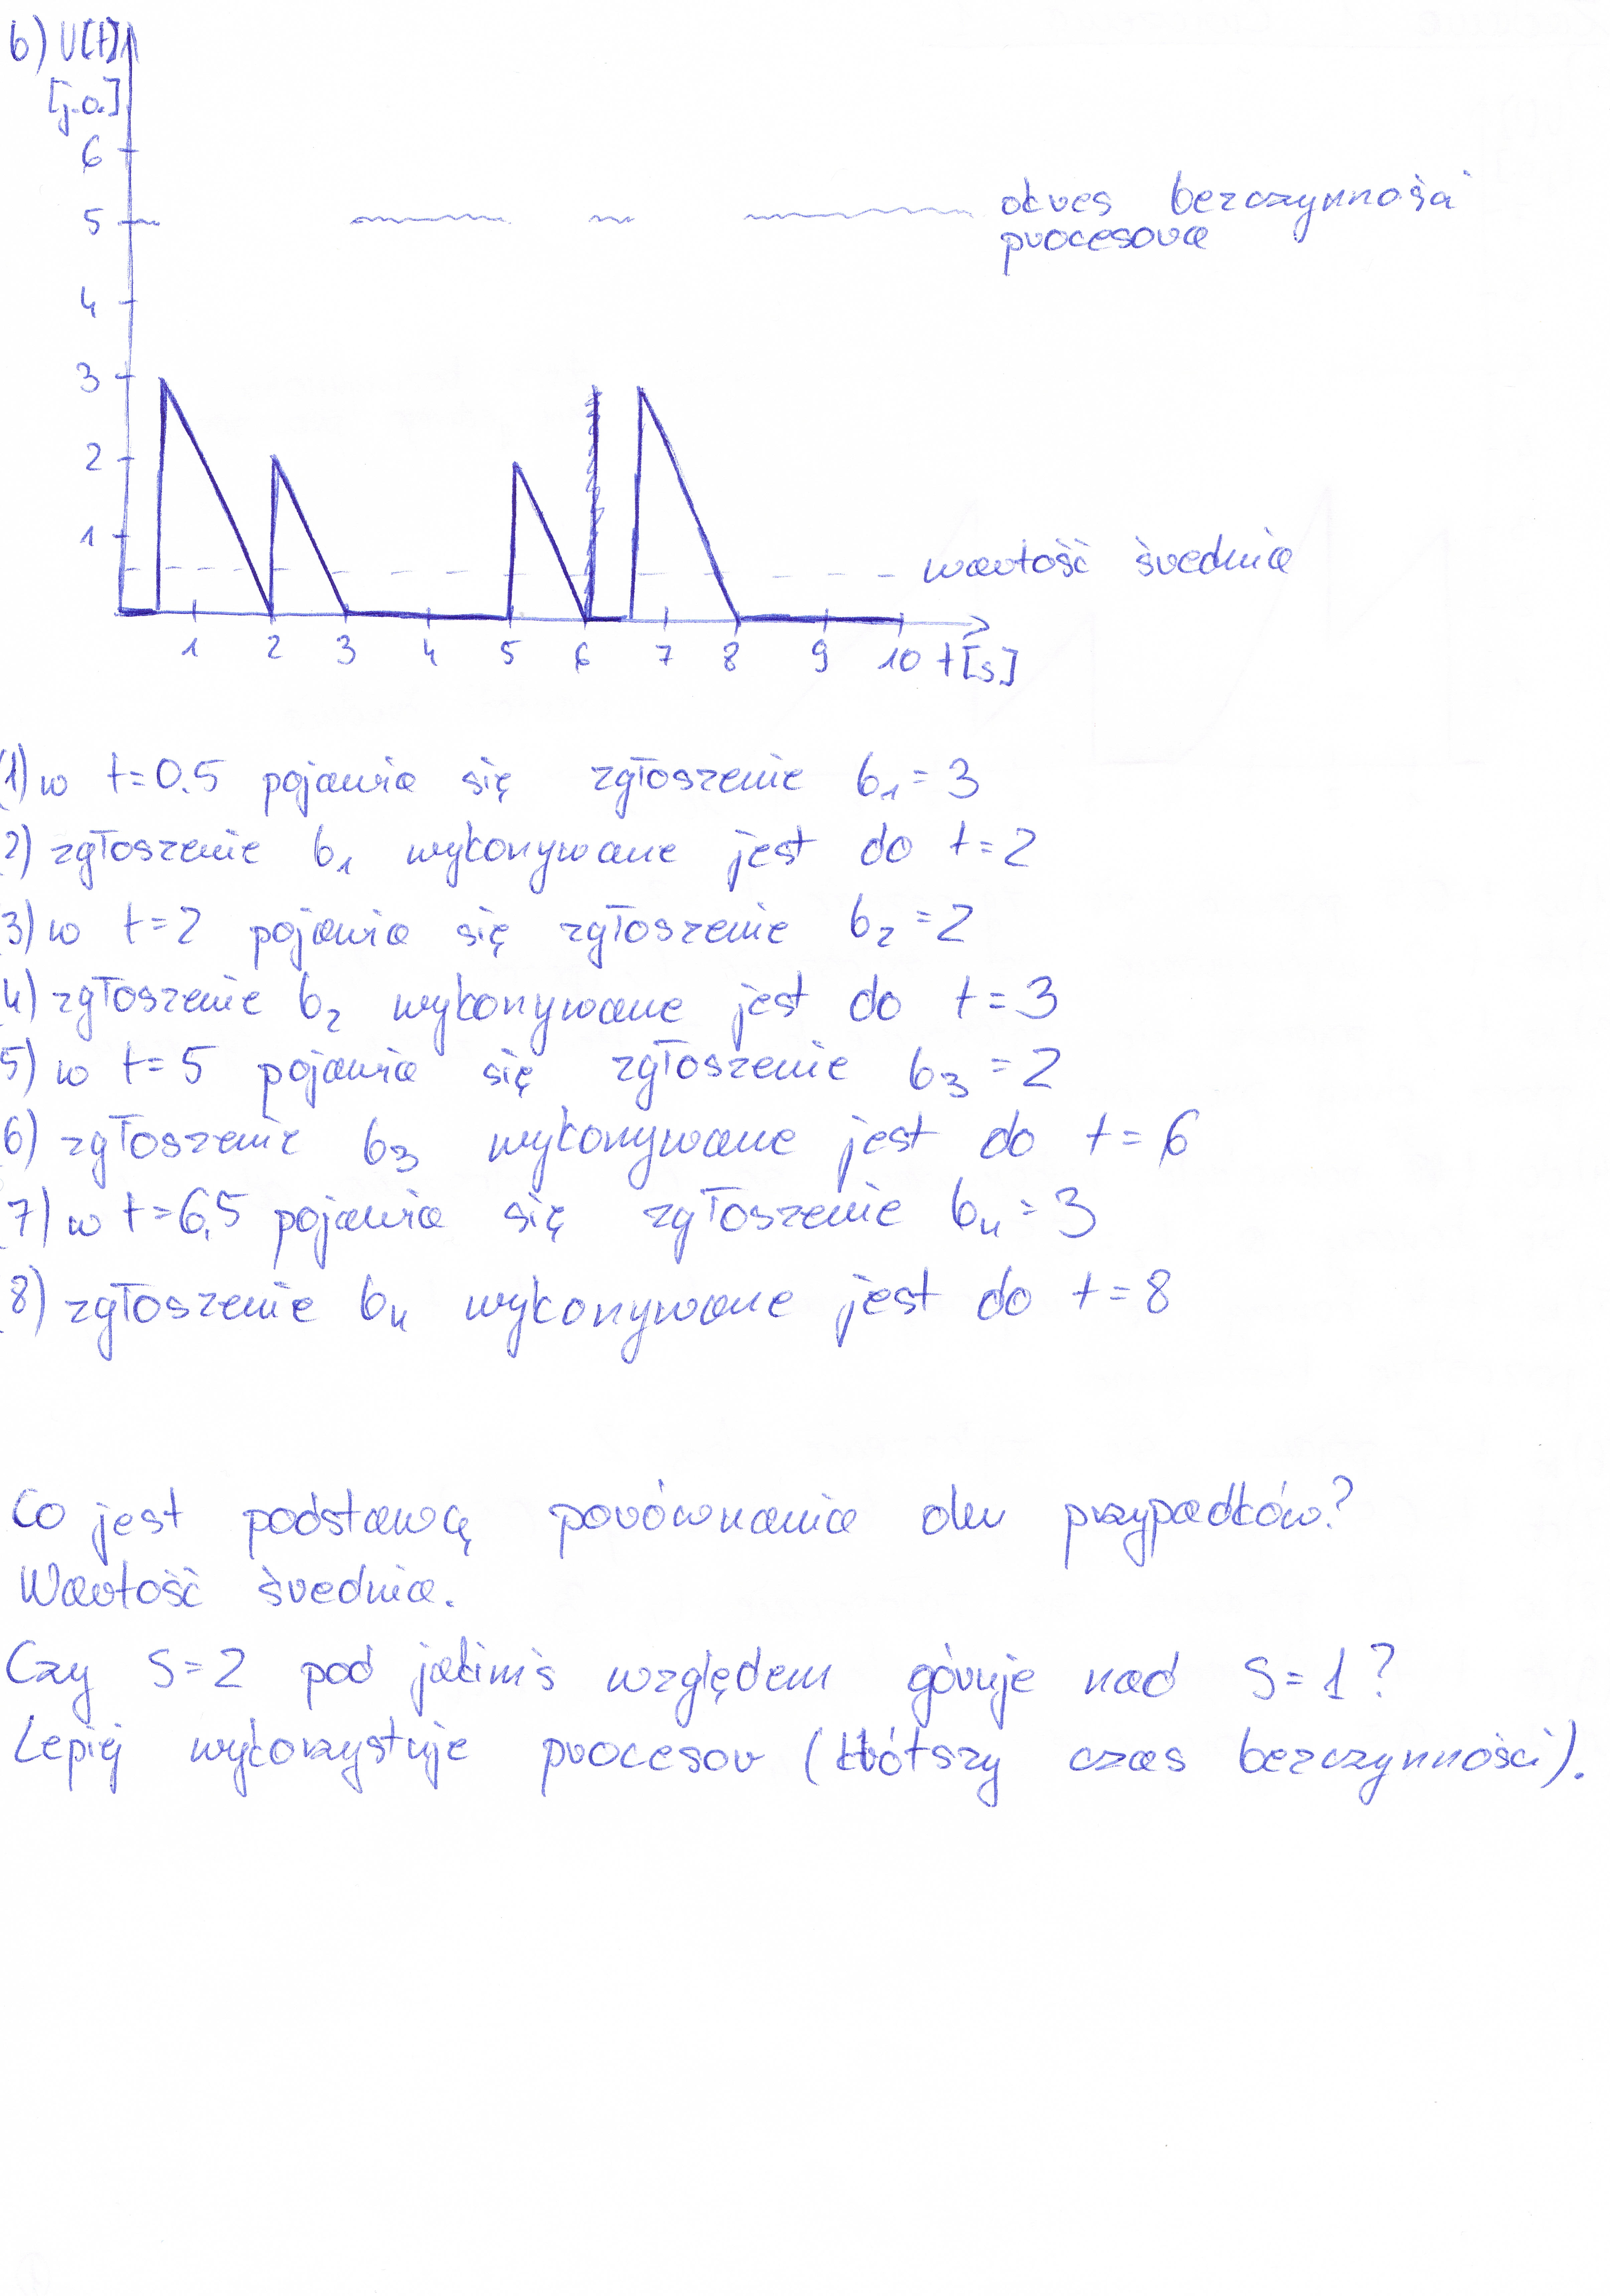 b) U(t)
[j.o.]
6
5
okres bezczynności
procesora
4
3
2
1
wartość średnia
1 2 3 4 5 6 7 8 9 10 t[s]
1) w t=0.5 pojawia się zgłoszenie b₁=3
2) zgłoszenie b₁ wykonywane jest do t=2
3) w t=2 pojawia się zgłoszenie b₂=2
4) zgłoszenie b₂ wykonywane jest do t=3
5) w t=5 pojawia się zgłoszenie b₃=2
6) zgłoszenie b₃ wykonywane jest do t=6
7) w t=6,5 pojawia się zgłoszenie b₄=3
8) zgłoszenie b₄ wykonywane jest do t=8
Co jest podstawą porównania obu przypadków?
Wartość średnia.
Czy S=2 pod jakimś względem góruje nad S=1?
Lepiej wykorzystuje procesor (krótszy czas bezczynności).